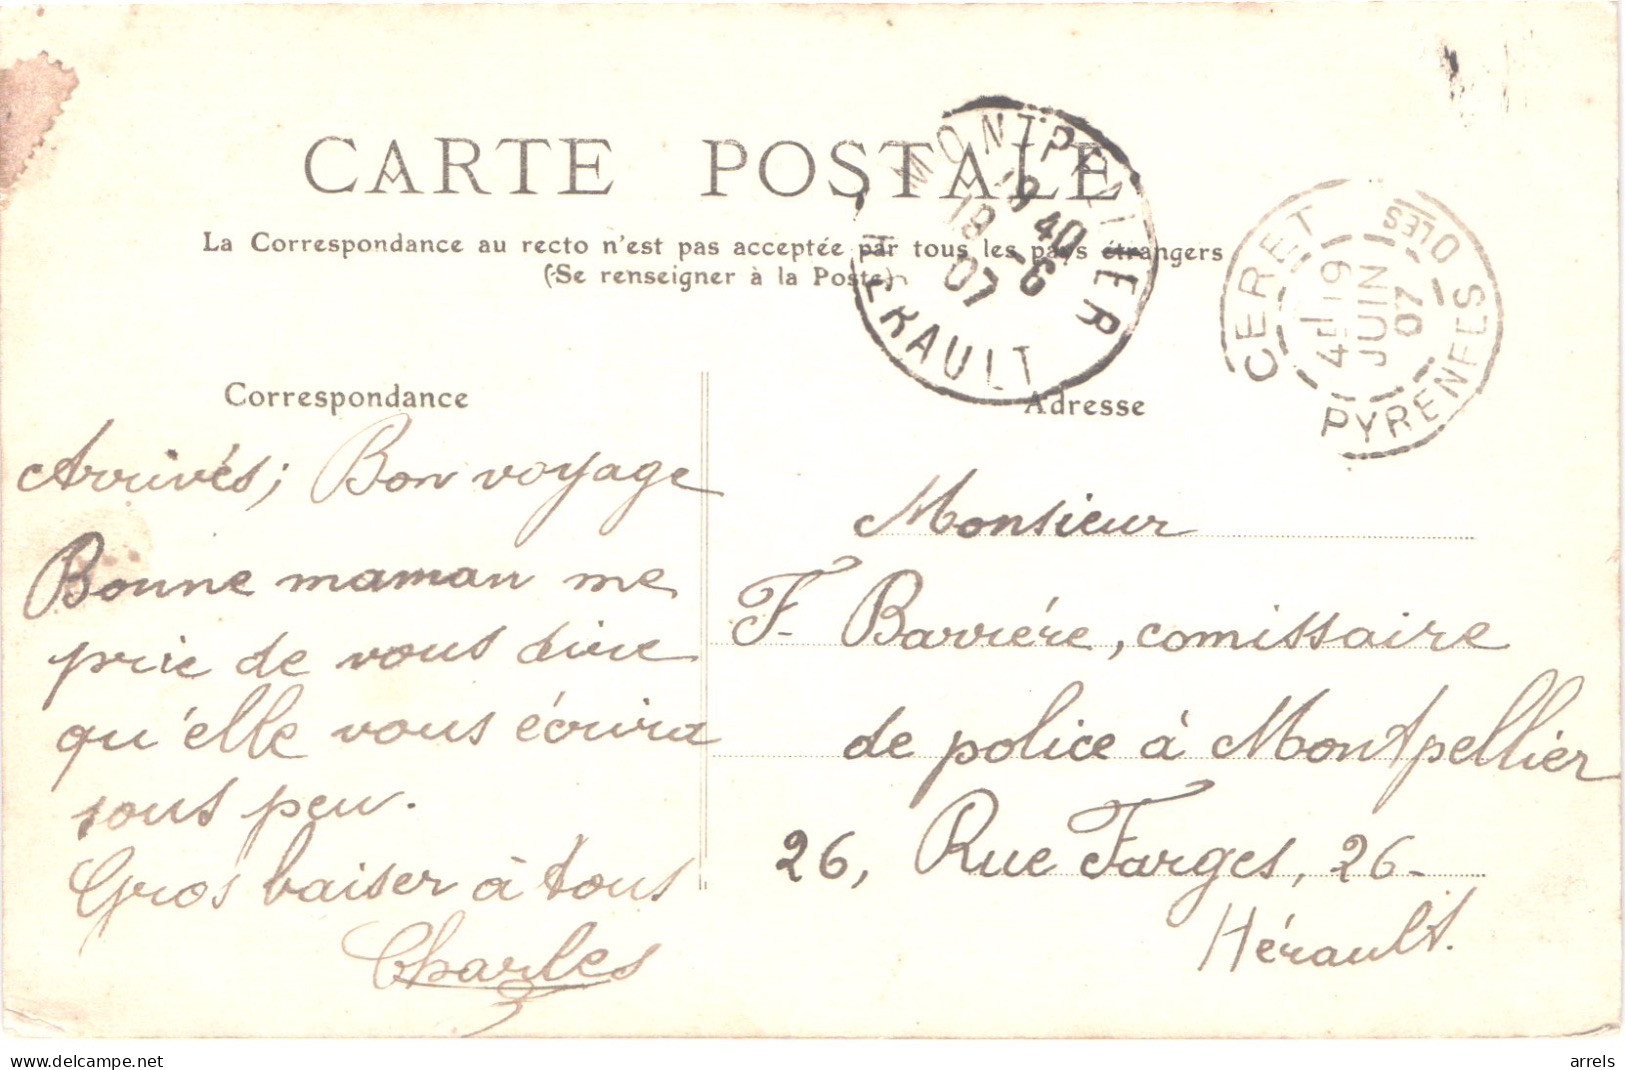 CARTE POSTALE
La Correspondance au recto n'est pas acceptée par tous les pays étrangers
(Se renseigner à la Poste)
MONTPELLIER
40
19 -6
07
HERAULT
CERET
4E 19
JUIN
07
PYRENEES OLES
Correspondance
Arrivés; Bon voyage
Bonne maman me
prie de vous dire
qu'elle vous écrira
sous peu.
Gros baiser à tous
Charles
Adresse
Monsieur
F. Barrière, comissaire
de police à Montpellier
26, Rue Farges, 26-
Hérault.
www.delcampe.net
arrels